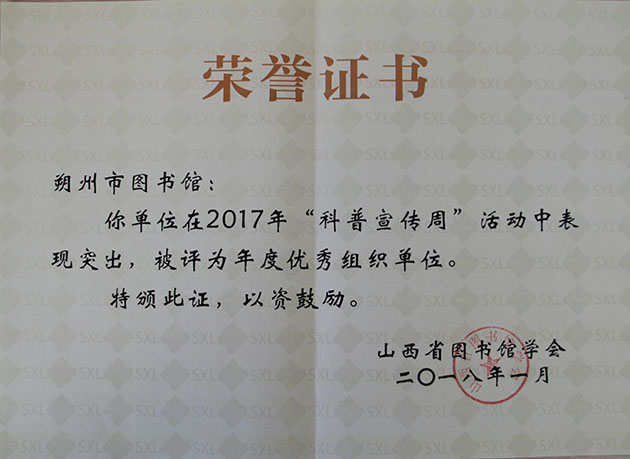 荣誉证书
朔州市图书馆：
你单位在2017年“科普宣传周”活动中表
现突出，被评为年度优秀组织单位。
特颁此证，以资鼓励。
山西省图书馆学会
二〇一八年一月